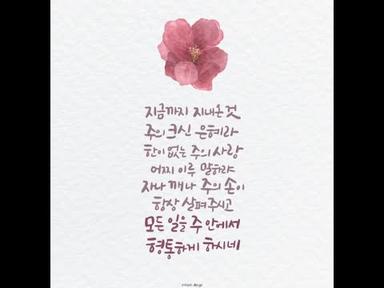 지금까지 지내온 것
주의 크신 은혜라
한이 없는 주의 사랑
어찌 이루 말하랴
자나 깨나 주의 손이
항상 살펴 주시고
모든 일을 주 안에서
형통하게 하시네